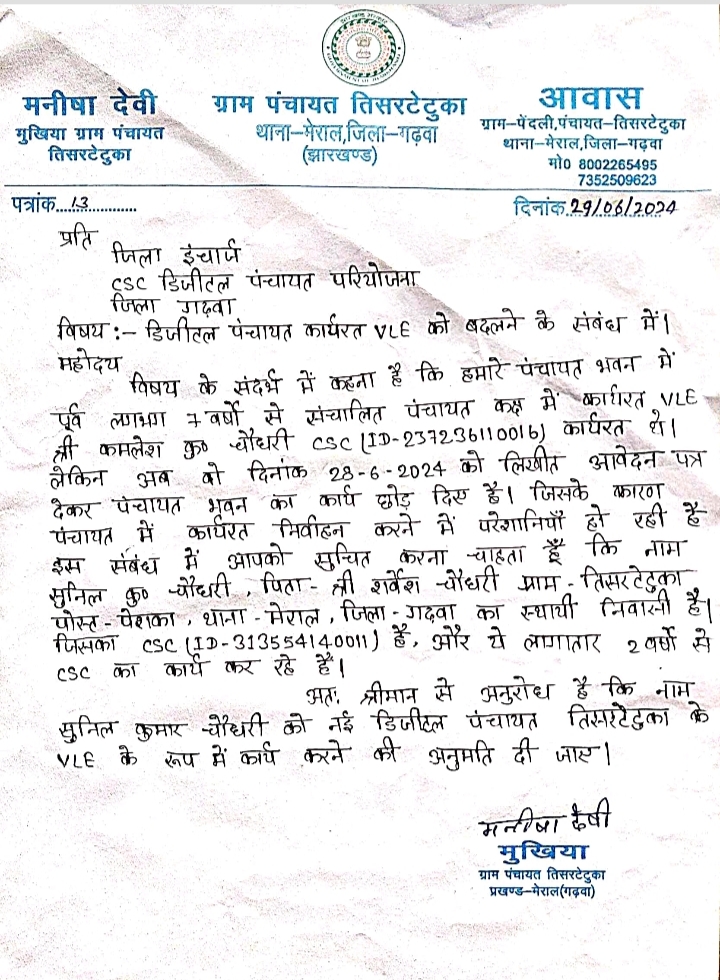 मनीषा देवी
मुखिया ग्राम पंचायत
तिसरटेटुका
ग्राम पंचायत तिसरटेटुका
थाना–मेराल,जिला–गढ़वा
(झारखण्ड)
आवास
ग्राम–पेंदली,पंचायत–तिसरटेटुका
थाना–मेराल,जिला–गढ़वा
मो0 8002265495
7352509623
पत्रांक....13.............
दिनांक.29/06/2024
प्रति
जिला इंचार्ज
CSC डिजीटल पंचायत परियोजना
जिला गढ़वा
विषय :- डिजीटल पंचायत कार्यरत VLE को बदलने के संबंध में।
महोदय
विषय के संदर्भ में कहना है कि हमारे पंचायत भवन में
पूर्व लगभग 7 वर्षो से संचालित पंचायत कक्ष में कार्यरत VLE
श्री कमलेश कु० चौधरी CSC (ID-237236110016) कार्यरत थे।
लेकिन अब वो दिनांक 28-6-2024 को लिखीत आवेदन पत्र
देकर पंचायत भवन का कार्य छोड़ दिए है। जिसके कारण
पंचायत में कार्यरत निर्वाहन करने में परेशानियाँ हो रही है
इस संबंध में आपको सुचित करना चाहता हूँ कि नाम
सुनिल कु० चौधरी, पिता- श्री शर्वेश चौधरी ग्राम-तिसरटेटुका
पोस्ट-पेशका, थाना-मेराल, जिला-गढ़वा का स्थायी निवासी है।
जिसका CSC (ID-313554140011) है, और ये लागातार 2 वर्षो से
CSC का कार्य कर रहे हैं।
अतः श्रीमान से अनुरोध है कि नाम
सुनिल कुमार चौधरी को नई डिजीटल पंचायत तिसरटेटुका के
VLE के रूप में कार्य करने की अनुमति दी जाए।
मनीषा देवी
मुखिया
ग्राम पंचायत तिसरटेटुका
प्रखण्ड–मेराल(गढ़वा)